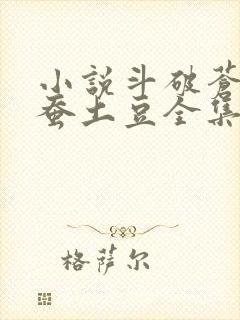 小說斗破蒼
蚕土豆全集
格萨尔